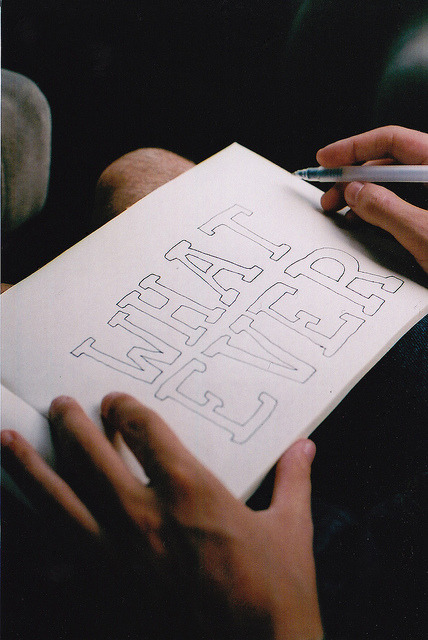 WHAT
EVER